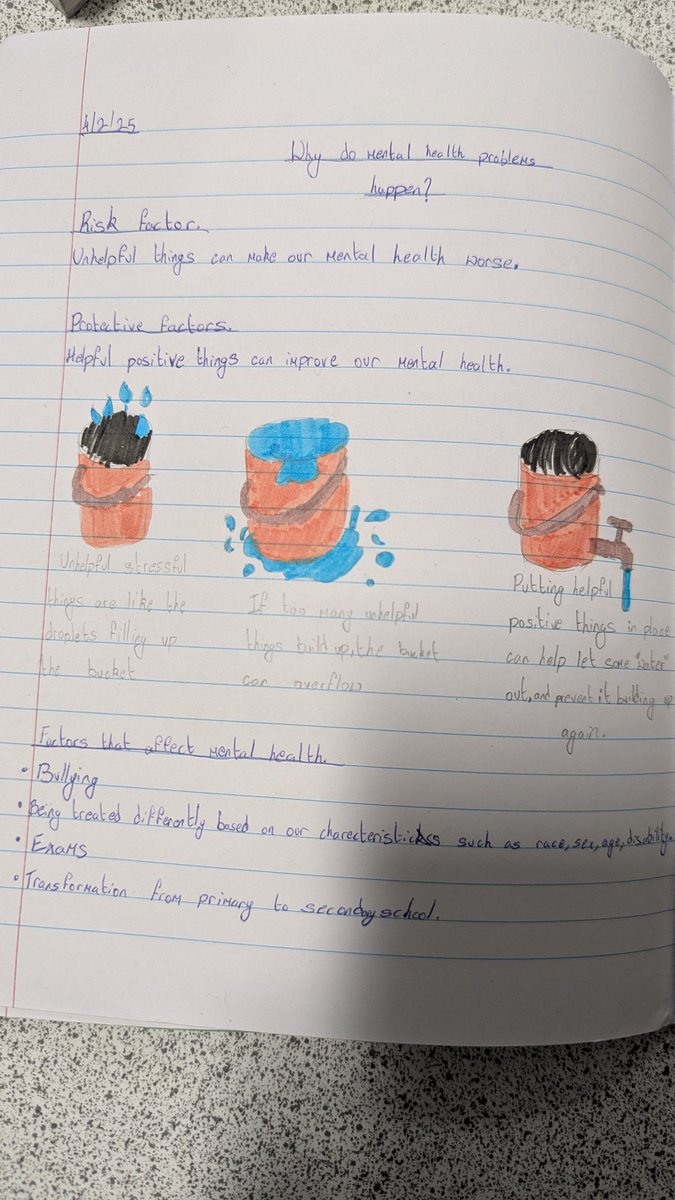 4/2/25
Why do mental health problems
happen?
Risk factor.
Unhelpful things can make our mental health worse.
Protective factors.
Helpful positive things can improve our mental health.
Unhelpful stressful
things are like the
droplets filling up
the bucket
If too many unhelpful
things build up, the bucket
can overflow
Putting helpful
positive things in place
can help let some "water"
out, and prevent it building up
again.
Factors that affect mental health.
• Bullying
• Being treated differently based on our such as race, sex, age, disability.
• Exams
• Transformation from primary to school.